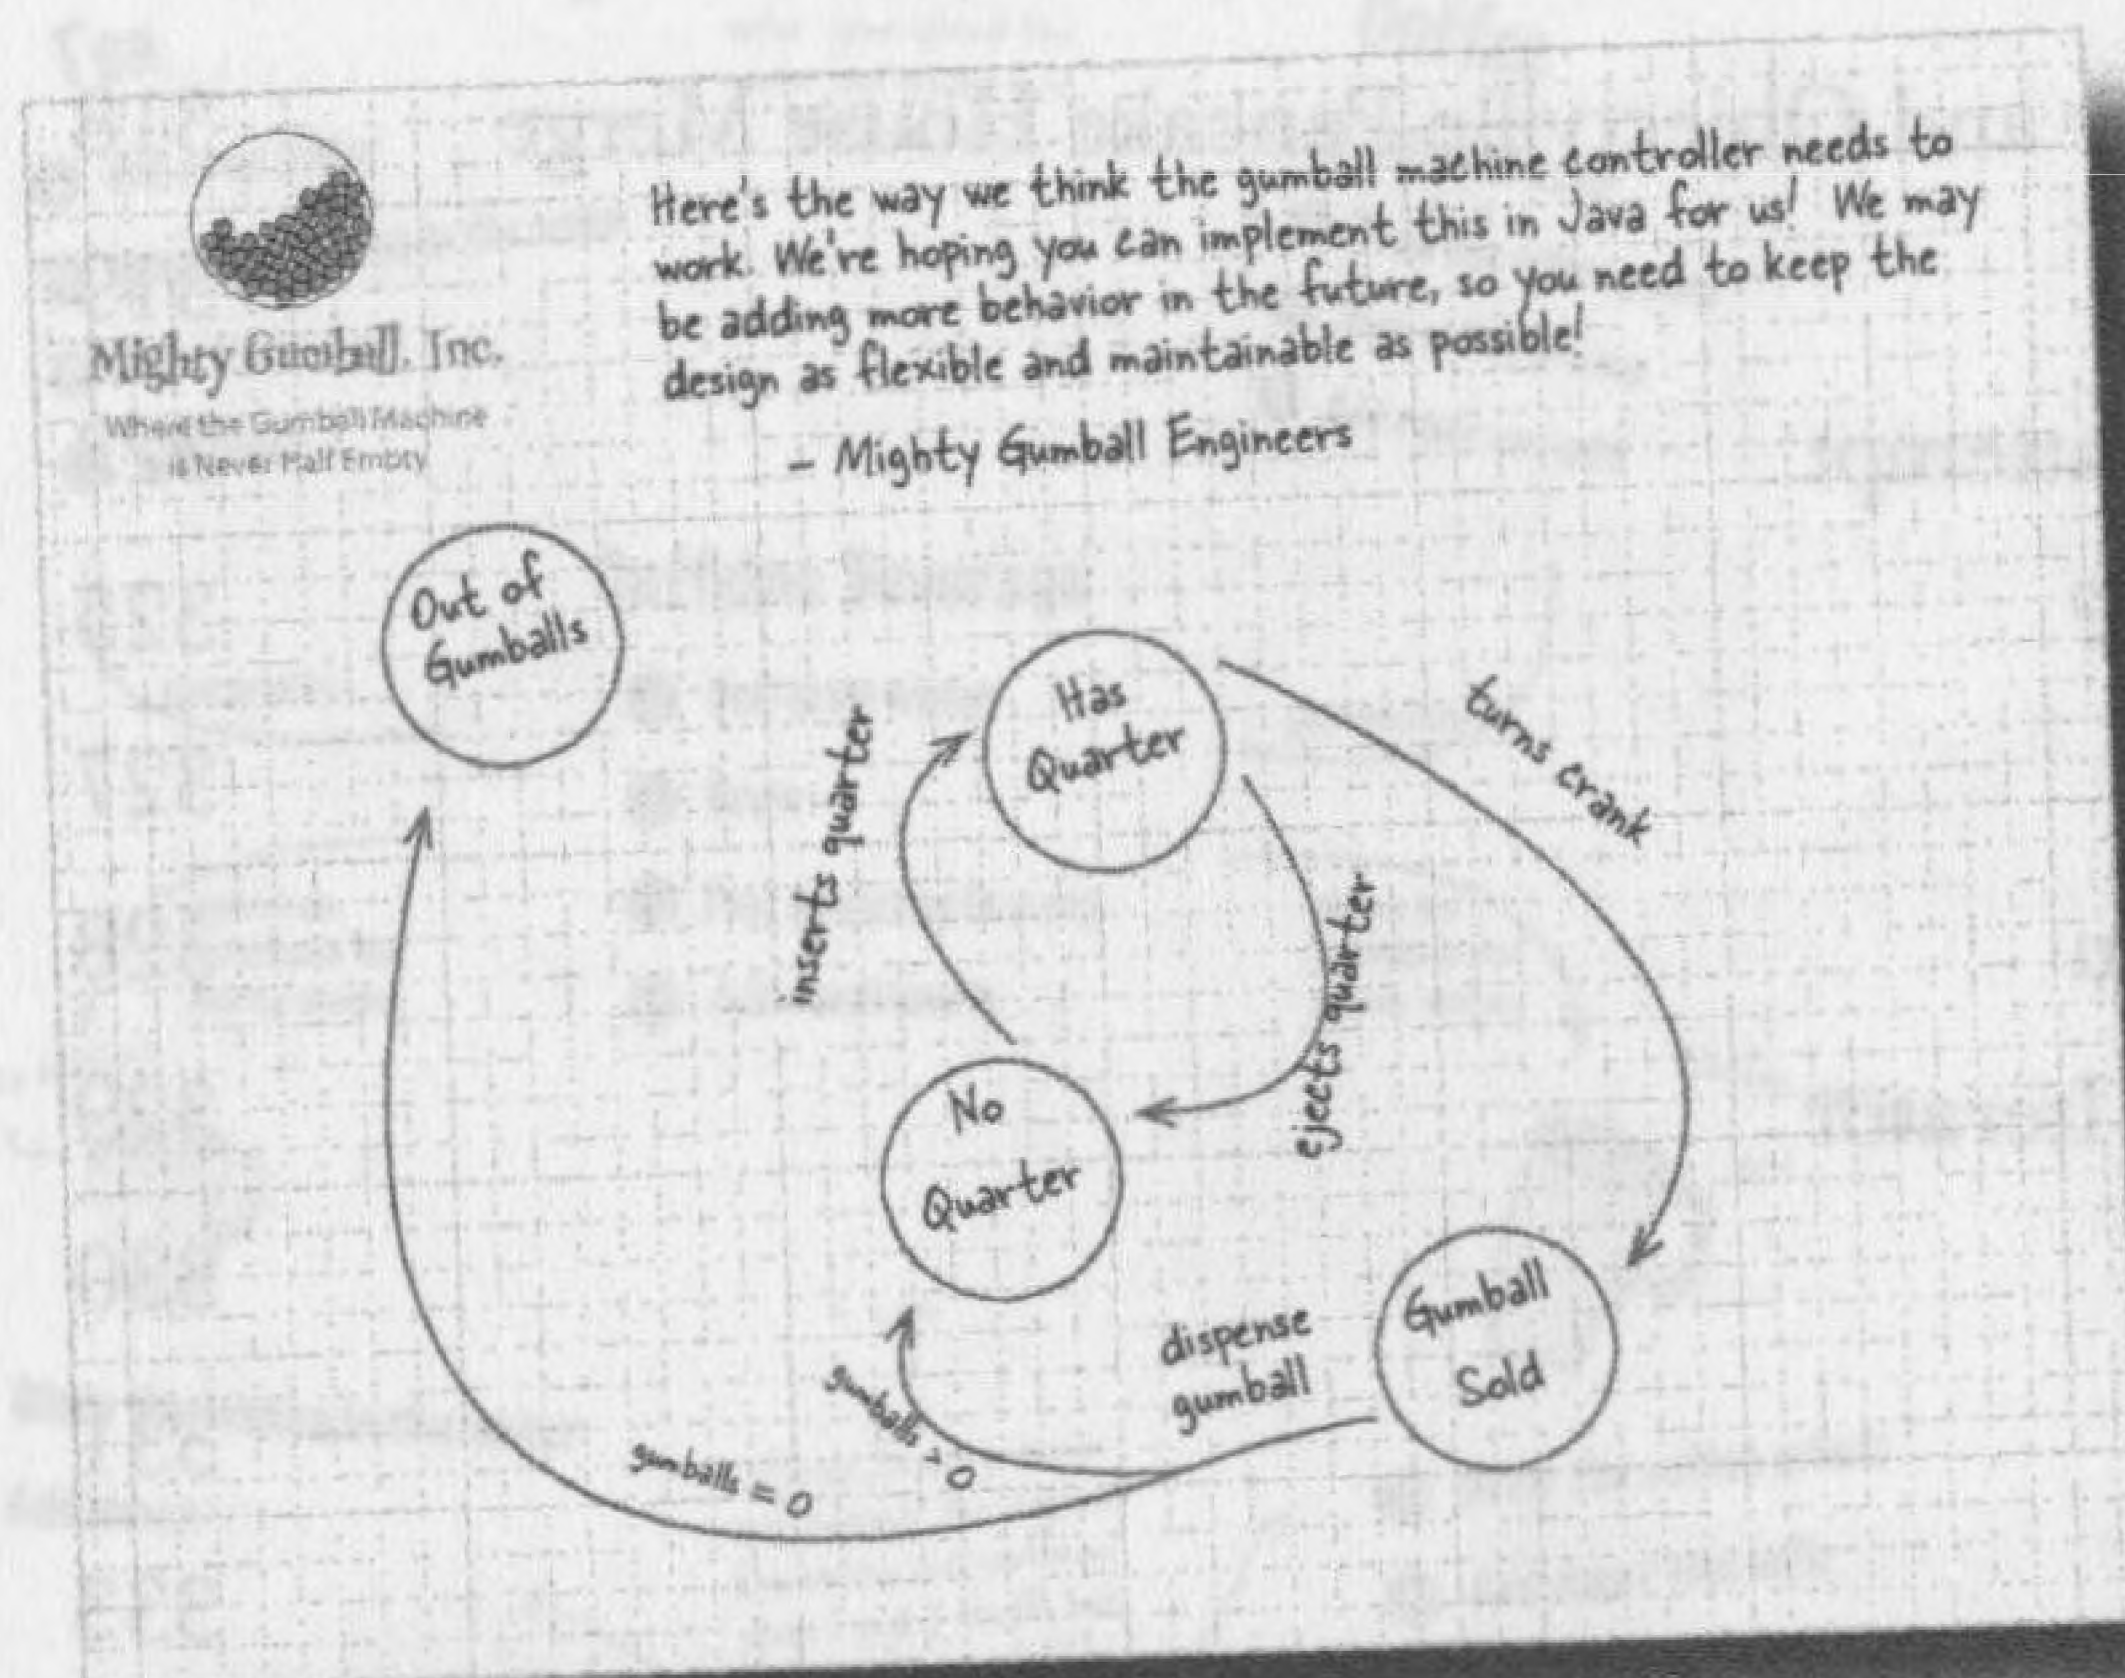 Mighty Gumball, Inc.
Where the Gumball Machine
is Never Half Empty
Here's the way we think the gumball machine controller needs to
work. We're hoping you can implement this in Java for us! We may
be adding more behavior in the future, so you need to keep the
design as flexible and maintainable as possible!
- Mighty Gumball Engineers
Out of
Gumballs
Has
Quarter
turns crank
inserts quarter
ejects quarter
No
Quarter
Gumball
Sold
dispense
gumball
gumballs > 0
gumballs = 0